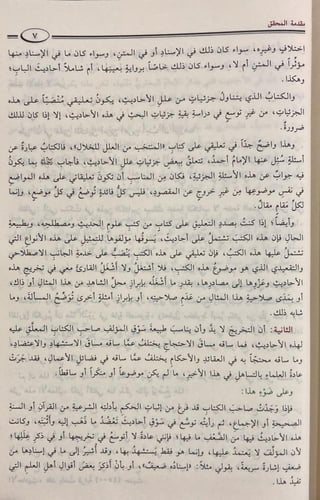 مقدمة المحقق
٧
اختلافٍ وغيره، سواء كان ذلك في الإسنادِ أو في المتنِ، وسواء كان ما في الإسنادِ منها
مؤثرًا في المتنِ أم لا، وسواء كان ذلك خاصًّا بروايةٍ بعينِها، أم شاملاً أحاديثَ البابِ؛
وهكذا.
والكتابُ الذي يتناولُ جزئياتٍ من عللِ الأحاديثِ، يكونُ تعليقي مُنْصَبًّا على هذه
الجزئياتِ، من غيرِ توسعٍ في دراسةِ بقيةِ جزئياتِ البحثِ في هذه الأحاديثِ، إلا إذا كان لذلك
ضرورةٌ.
وهذا واضحٌ جدًّا في تعليقي على كتابِ «المنتخب من العلل للخلال»، فالكتابُ عبارةٌ عن
أسئلةٍ سُئِلَ عنها الإمامُ أحمدُ، تتعلقُ ببعضِ جزئياتِ عللِ الأحاديثِ، فأجاب بما يكونُ
فيه جوابٌ عن هذه الأسئلةِ الجزئيةِ، فكان من المناسبِ أن تكونَ تعليقاتي على هذه المواضعِ
في نفسِ موضوعِها من غيرِ خروجٍ عن المقصودِ، فليس كلُّ فائدةٍ تُوضعُ في كلِّ موضعٍ، وإنما
لكلِّ مَقَامٍ مقالٌ.
وأيضًا؛ إذا كنتُ بصددِ التعليقِ على كتابٍ من كتبِ علومِ الحديثِ ومصطلحِه، وبطبيعةِ
الحالِ فإن هذه الكتبَ تشتملُ على أحاديثَ، يسوقُها مؤلفوها للتمثيلِ على هذه الأنواعِ التي
تشتملُ عليها هذه الكتبُ، فإن تعليقي على هذه الكتبِ يَنْصَبُّ على خدمةِ الجانبِ الاصطلاحي
والتقعيدي الذي هو موضوعُ هذه الكتبِ، فلا أشتغلُ ولا أَشْغَلُ القارئَ معي في تخريجِ هذه
الأحاديثِ وعزوِها إلى مصادرِها، بقدرِ ما أَشْغَلُه بإبرازِ محلِّ الشاهدِ من هذا المثالِ أو ذاك،
أو بمَدَى صلاحيةِ هذا المثالِ من عدمِ صلاحيتِه، أو بإبرازِ أمثلةٍ أخرى تُوَضِّحُ المسألةَ، وما
شابه ذلك.
الثانية: أن التخريجَ لا بدَّ وأن يناسبَ طبيعةَ سَوْقِ المؤلفِ صاحبِ الكتابِ المعلَّقِ عليه
لهذه الأحاديثِ، فما ساقه مساقَ الاحتجاجِ يختلفُ عمَّا ساقه مساقَ الاستشهادِ والاعتضادِ،
وما ساقه محتجًّا به في العقائدِ والأحكامِ يختلفُ عمَّا ساقه في فضائلِ الأعمالِ، فقد جَرَتْ
عادةُ العلماءِ بالتساهلِ في هذا الأخيرِ، ما لم يكن موضوعًا أو منكرًا أو ساقطًا.
وعلى ضَوْءِ هذا:
فإذا وَجَدْتُ صاحبَ الكتابِ قد فرغ من إثباتِ الحكمِ بأدلتِه الشرعيةِ من القرآنِ أو السنةِ
الصحيحةِ أو الإجماعِ، ثم رأيتُه توسَّع في سَوْقِ أحاديثَ تَعْضُدُ ما ذَهَب إليه وأَثْبَتَه، وكانت
هذه الأحاديثُ فيها من الضَّعْفِ ما فيها؛ فإنني عادةً لا أتوسعُ في تخريجِها أو في ذكرِ عِلَلِها؛
لأن المؤلفَ لا يَعتمدُ عليها، وإنما هو فقط يَستشهدُ بها، وقد أُشيرُ إلى ما في إسنادِها من
ضعفٍ إشارةً سريعةً، بقولي مثلاً: «إسنادُه ضعيفٌ»، أو بأن أذكرَ بعضَ أقوالِ أهلِ العلمِ التي
تفيدُ هذا.